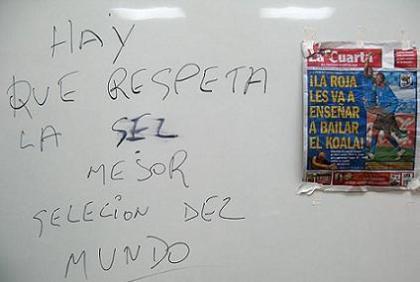 HAY
QUE RESPETA
LA SEL
MEJOR
SELECION DEL
MUNDO
La Cuarta
¡LA ROJA
LES VA A
ENSEÑAR
A BAILAR
EL KOALA!